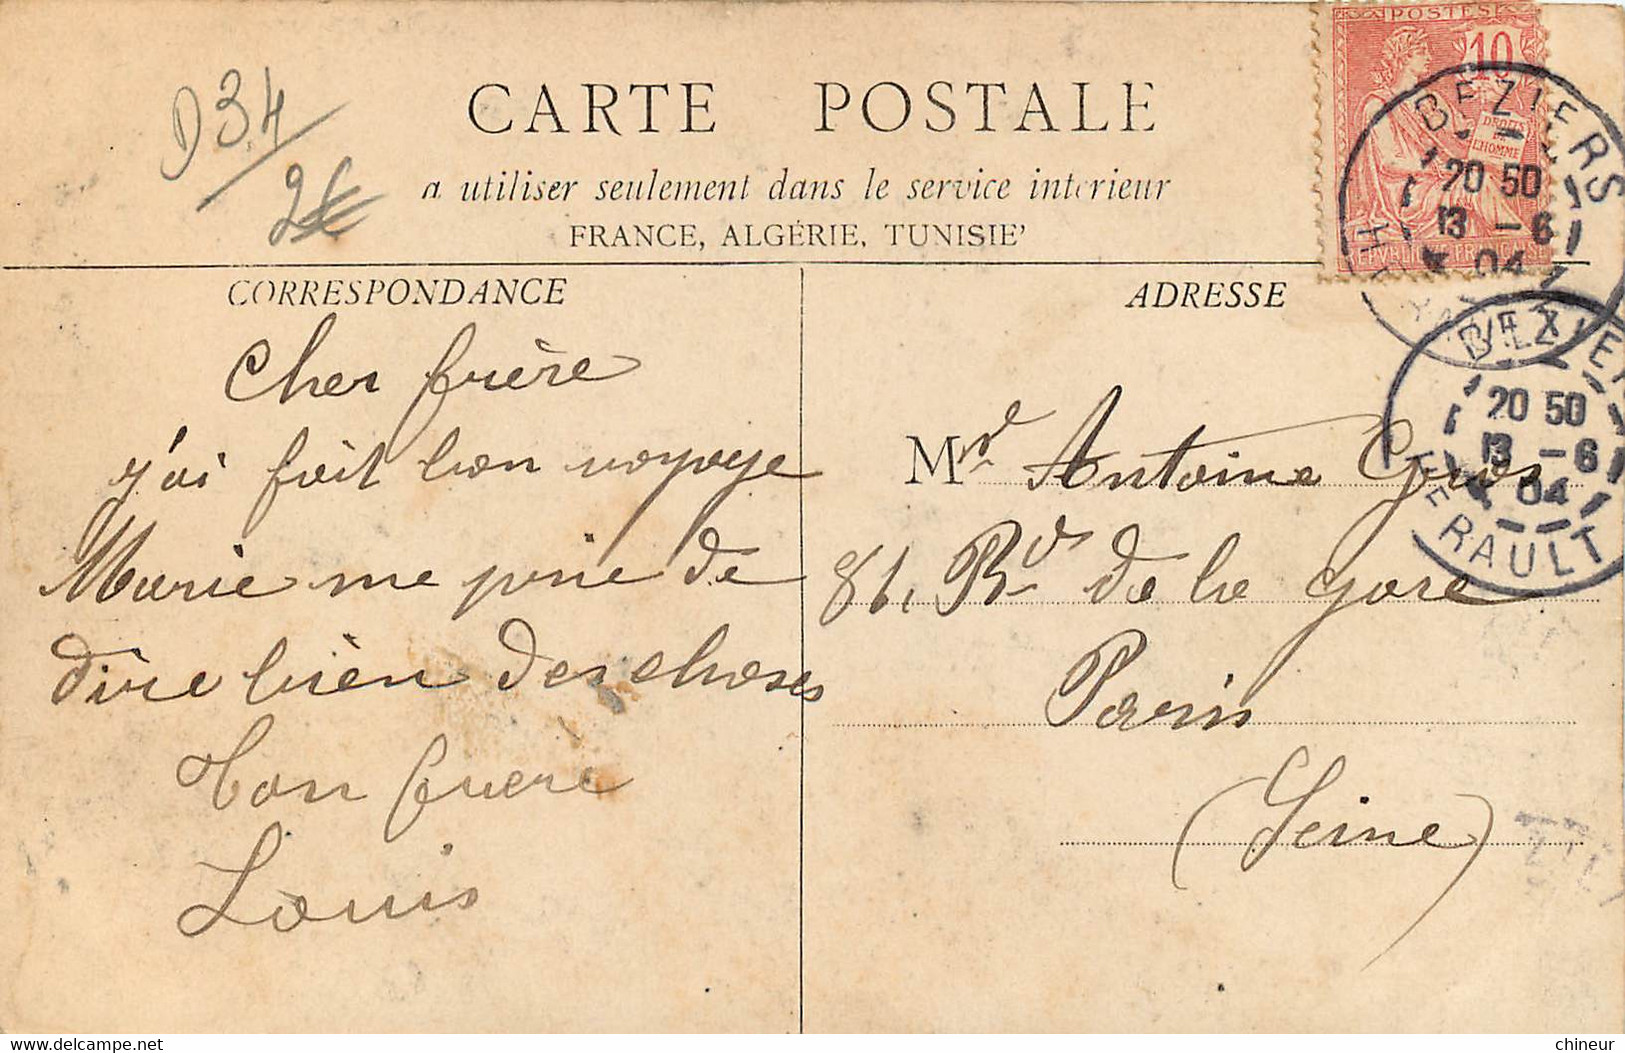 D34
2€
CARTE POSTALE
a utiliser seulement dans le service intérieur
FRANCE, ALGÉRIE, TUNISIE
CORRESPONDANCE
Cher frère
j'ai fait bon voyage
Marie me prie de
dire bien des choses
Ton frère
Louis
ADRESSE
Mr Antoine Gros
81, Bd de la Gare
Paris
(Seine)
POSTES
10
DROITS
DE L'HOMME
REPUBLIQUE FRANÇAISE
BEZIERS
20 50
13 - 6
04
HERAULT
BEZIERS
20 50
13 - 6
04
HERAULT
chineur